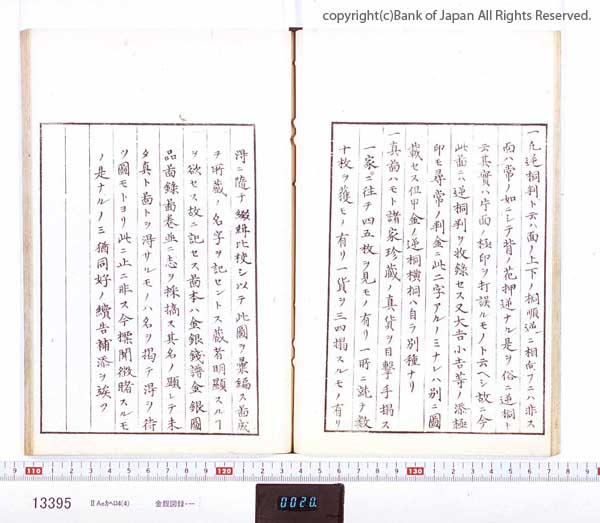 copyright(c)Bank of Japan All Rights Reserved.
一凡逆桐判ト云ハ面ノ上下ノ桐順逆ニ相向フニハ非ス
面ハ常ノ如ニシテ背ノ花押逆ナル是ヲ俗ニ逆桐ト
云其實ハ片面ノ極印ヲ打誤ルモノト云ヘシ故ニ今
此圖ニハ逆桐判ヲ收錄セス又大吉小吉等ノ添極
印モ尋常ノ判金ニ此二字アルノミナレハ別ニ圖
載セス但甲金ノ逆桐橫桐ハ自ラ別種ナリ
一真圖ハモト諸家珍藏ノ真貨ヲ目擊手搨ス
一家ニ往テ四五枚ヲ見モノ有リ一所ニ就テ數
十枚ヲ獲モノ有リ一貨ヲ三四搨スルモノ有リ
得ニ隨テ綴輯比校シ以テ此圖ヲ彙編ス圖成
ヲ所藏ノ名字ヲ記セントス藏者明顯スルヿ
ヲ欲セス故ニ記セス圖本ハ金銀錢譜金銀圖
品圖錄圖卷並ニ志ノ採搞ス其名ノ顯レテ未
タ真ト圖トヲ得サルモノハ名ヲ揭テ得ヲ待
ヲ圖モトヨリ此ニ止ニ非ス今標聞徴睹スルモ
ノ是ナルノミ猶同好ノ續告補添ヲ竢ツ
110
120
130
13395
II Aeカヘロ4(4)
金銀図録・--
0020.